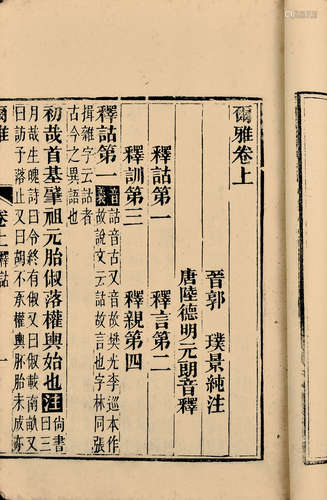 爾雅卷上
晉郭 璞景純注
唐陸德明元朗音釋
釋詁第一 釋言第二
釋訓第三 釋親第四
釋詁第一 音義 詁音古又音故樊光李巡本作
故說文云詁故言也字林同張
揖雜字云詁者
古今之異語也
初哉首基肈祖元胎俶落權輿始也 注 尚書
曰三
月哉生魄詩曰令終有俶又曰俶載南畝又
曰訪予落止又曰胡不承權輿胚胎未成亦
爾雅 卷上釋詁 一